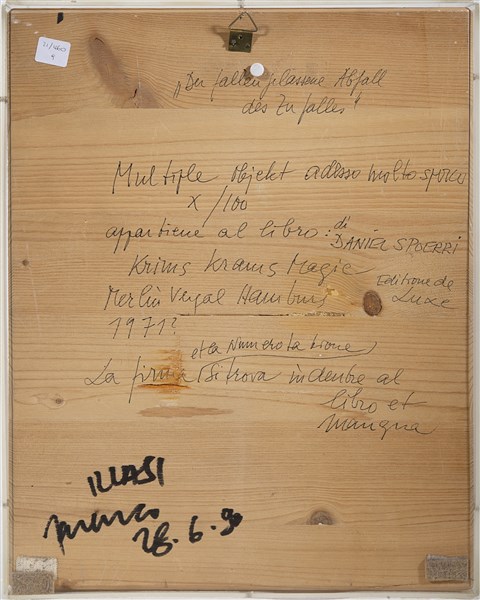 21/460
9
„Der fallengelassene Abfall
des Zufalles"
Multiple Objekt adesso molto sporco
X/100
appartiene al libro: di
DANIEL SPOERRI
Krims Krams Magie Editione de
Merlin Verlag Hamburg Luxe
1971?
et la Numerotazione
La firma si trova indentre al
libro et
mangna
ILLASI
28.6.90